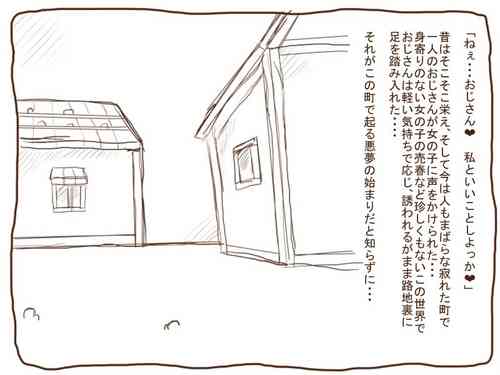 「ねぇ・・・おじさん❤　私といいことしよっか❤」
昔はそこそこ栄え、そして今は人もまばらな寂れた町で
一人のおじさんが女の子に声をかけられた・・・
身寄りのない女の子の売春など珍しくもないこの世界で
おじさんは軽い気持ちで応じ、誘われるがまま路地裏に
足を踏み入れた・・・
それがこの町で起る悪夢の始まりだと知らずに・・・